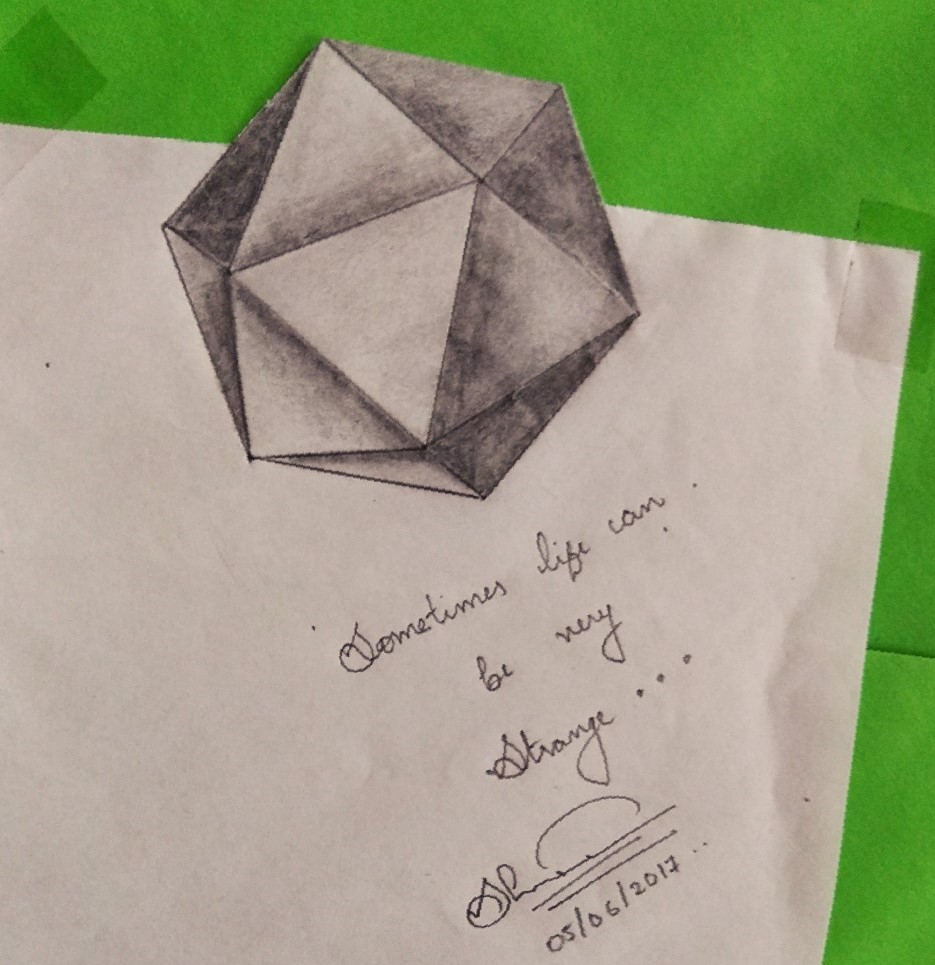 Sometimes life can
be very
Strange...
05/06/2017..